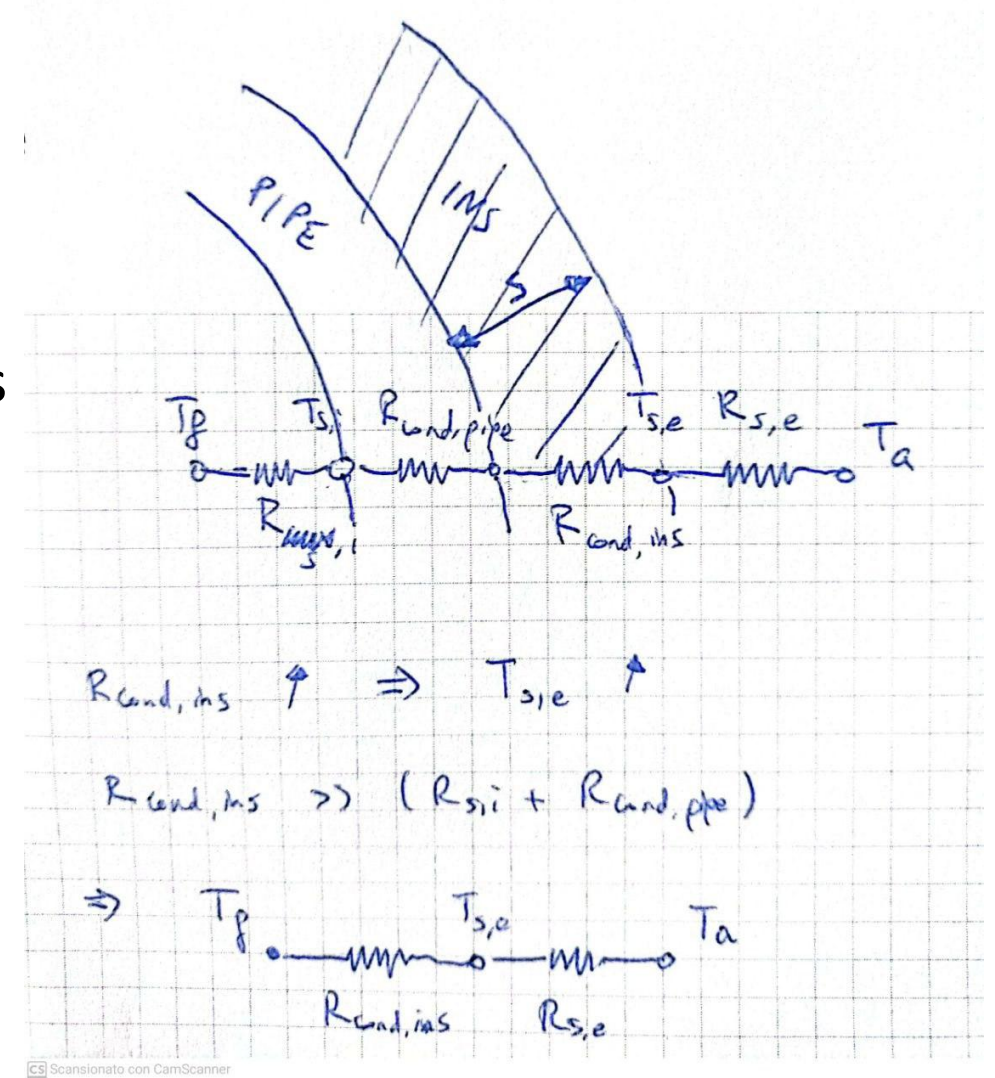 PIPE
INS
s
Tf Ts,i Rcond,pipe Ts,e Rs,e Ta
Rs,i Rcond,ins
Rcond,ins ↑ ⇒ Ts,e ↑
Rcond,ins >> (Rs,i + Rcond,pipe)
⇒ Tf Ts,e Ta
Rcond,ins Rs,e
CS Scansionato con CamScanner